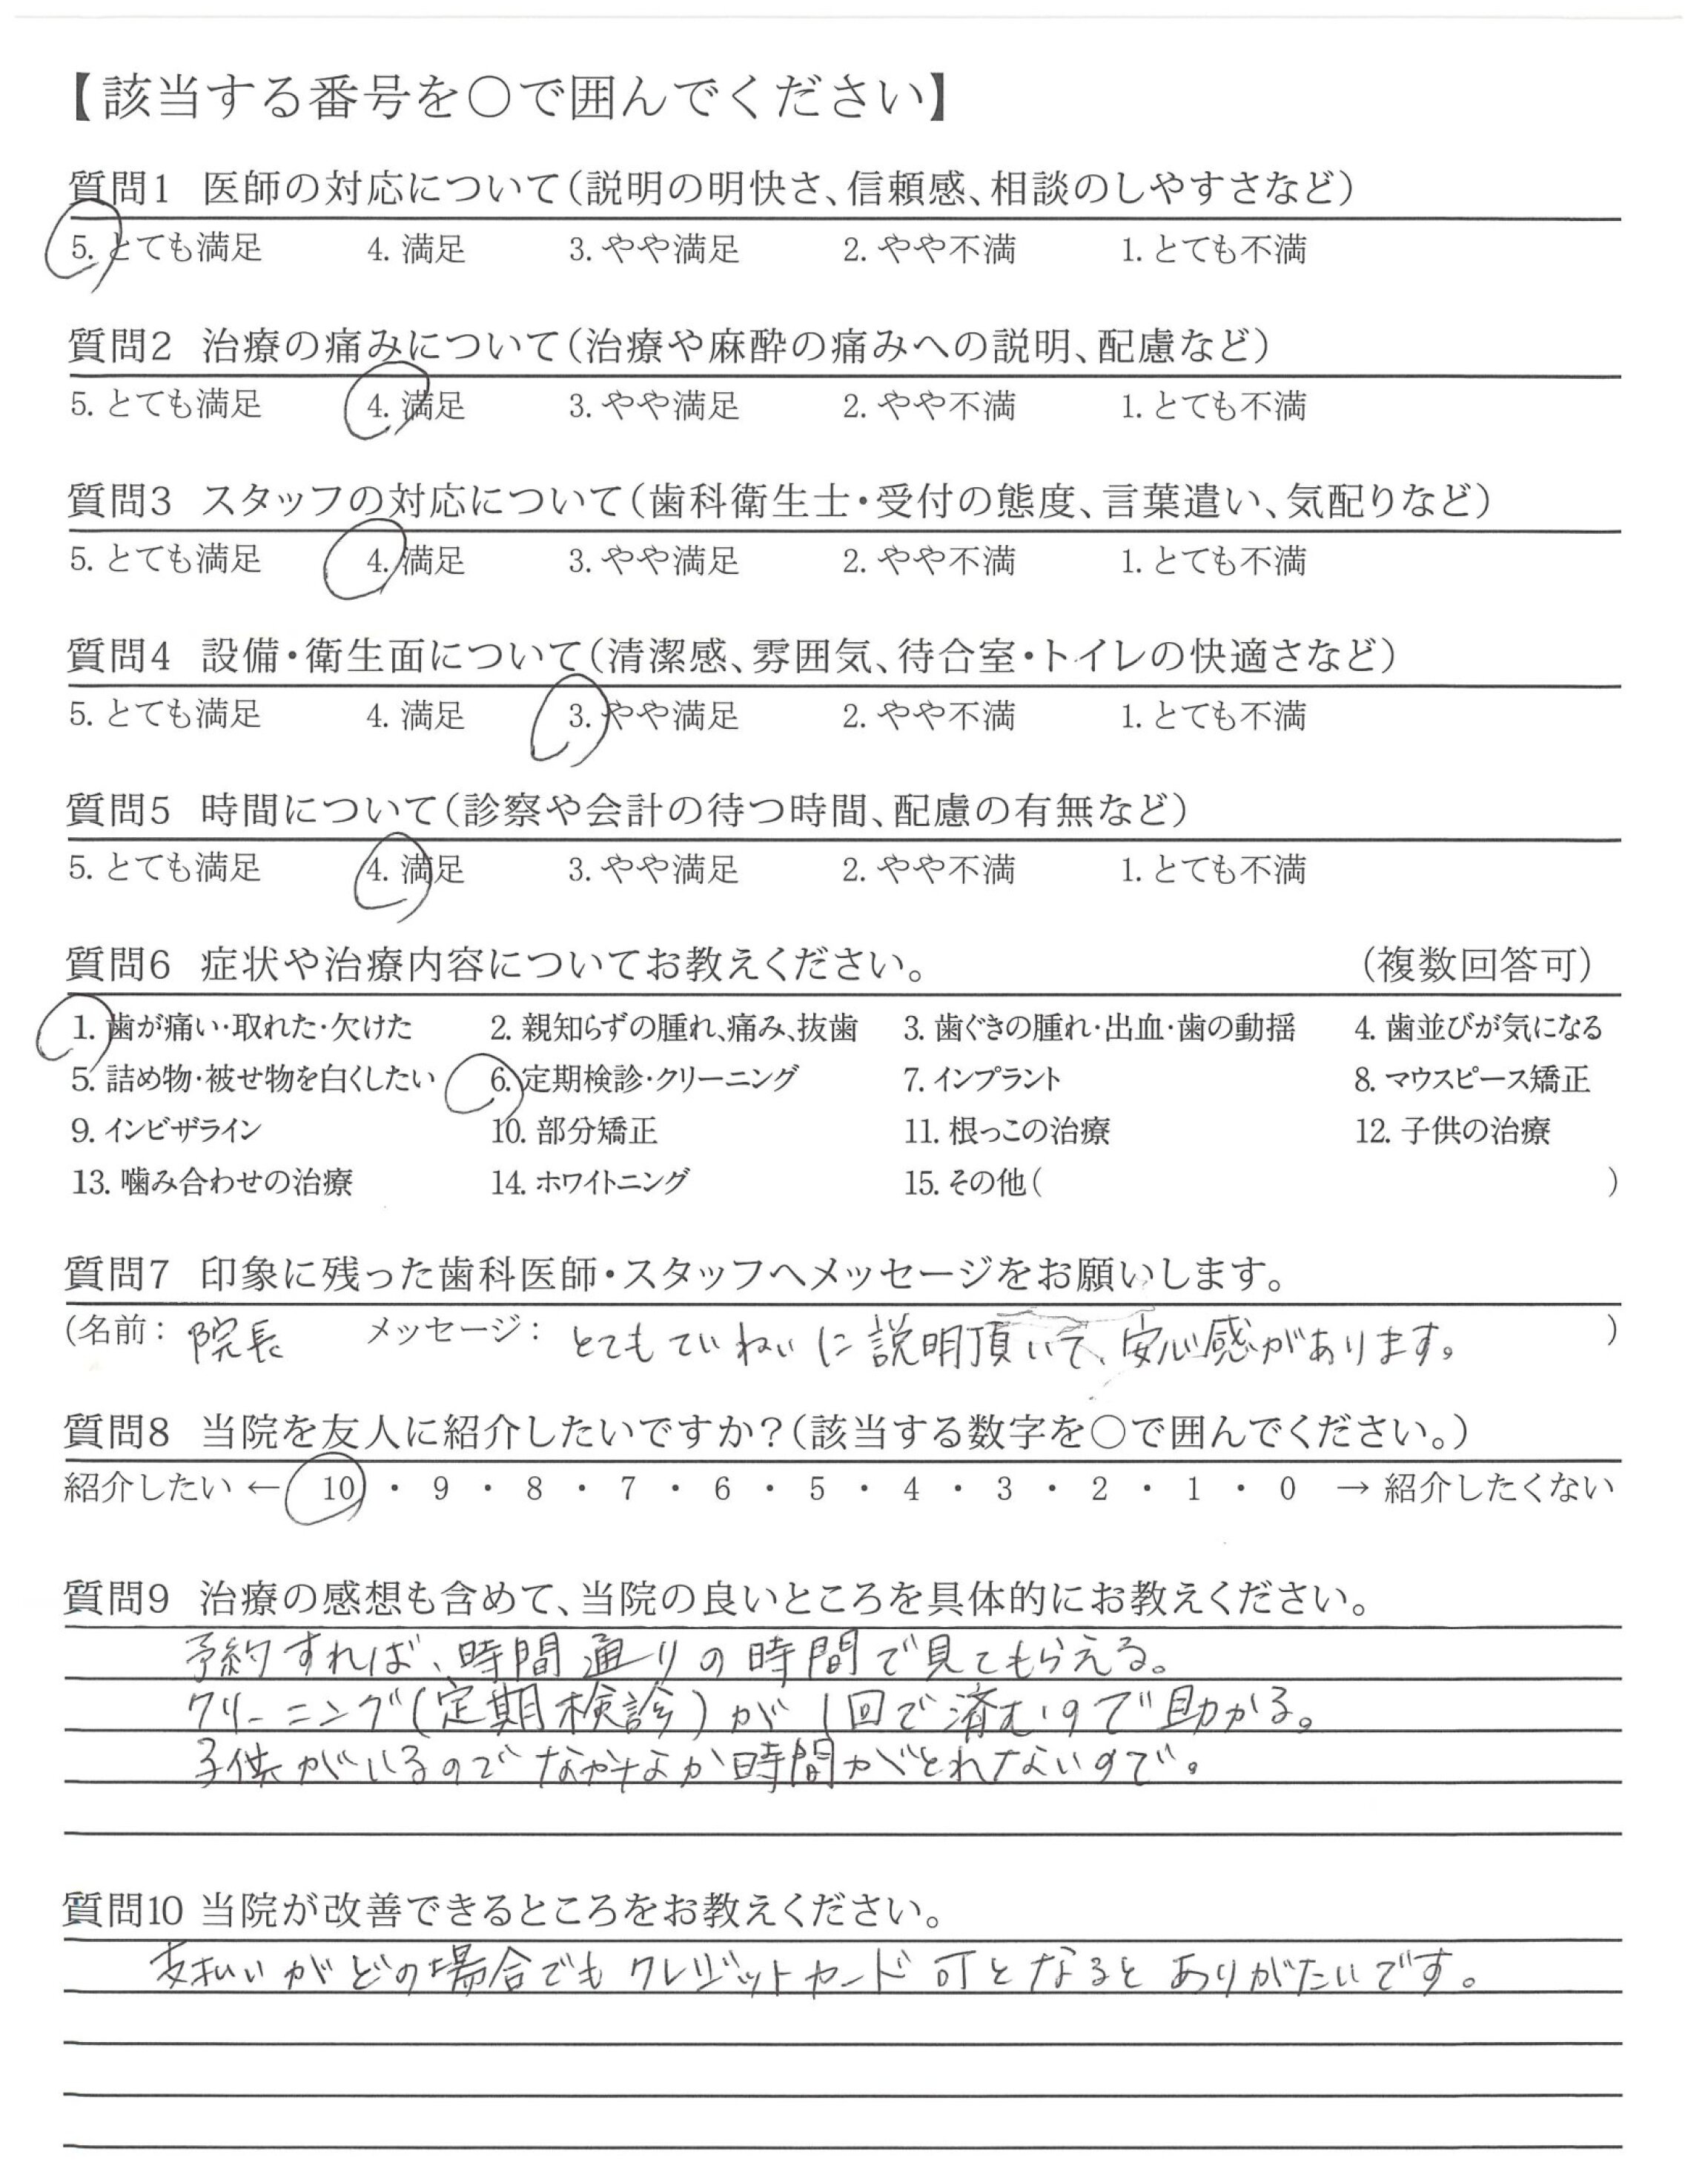 【該当する番号を○で囲んでください】
質問1 医師の対応について(説明の明快さ、信頼感、相談のしやすさなど)
5. とても満足 4. 満足 3. やや満足 2. やや不満 1. とても不満
質問2 治療の痛みについて(治療や麻酔の痛みへの説明、配慮など)
5. とても満足 4. 満足 3. やや満足 2. やや不満 1. とても不満
質問3 スタッフの対応について(歯科衛生士・受付の態度、言葉遣い、気配りなど)
5. とても満足 4. 満足 3. やや満足 2. やや不満 1. とても不満
質問4 設備・衛生面について(清潔感、雰囲気、待合室・トイレの快適さなど)
5. とても満足 4. 満足 3. やや満足 2. やや不満 1. とても不満
質問5 時間について(診察や会計の待つ時間、配慮の有無など)
5. とても満足 4. 満足 3. やや満足 2. やや不満 1. とても不満
質問6 症状や治療内容についてお教えください。 (複数回答可)
1. 歯が痛い・取れた・欠けた 2. 親知らずの腫れ、痛み、抜歯 3. 歯ぐきの腫れ・出血・歯の動揺 4. 歯並びが気になる
5. 詰め物・被せ物を白くしたい 6. 定期検診・クリーニング 7. インプラント 8. マウスピース矯正
9. インビザライン 10. 部分矯正 11. 根っこの治療 12. 子供の治療
13. 噛み合わせの治療 14. ホワイトニング 15. その他( )
質問7 印象に残った歯科医師・スタッフへメッセージをお願いします。
(名前: 院長 メッセージ: とてもていねいに説明頂いて、安心感があります。 )
質問8 当院を友人に紹介したいですか?(該当する数字を○で囲んでください。)
紹介したい ← 10 ・ 9 ・ 8 ・ 7 ・ 6 ・ 5 ・ 4 ・ 3 ・ 2 ・ 1 ・ 0 → 紹介したくない
質問9 治療の感想も含めて、当院の良いところを具体的にお教えください。
予約すれば、時間通りの時間で見てもらえる。
クリーニング(定期検診)が1回で済むので助かる。
子供がいるのでなかなか時間がとれないので。
質問10 当院が改善できるところをお教えください。
支払いがどの場合でもクレジットカード可となるとありがたいです。